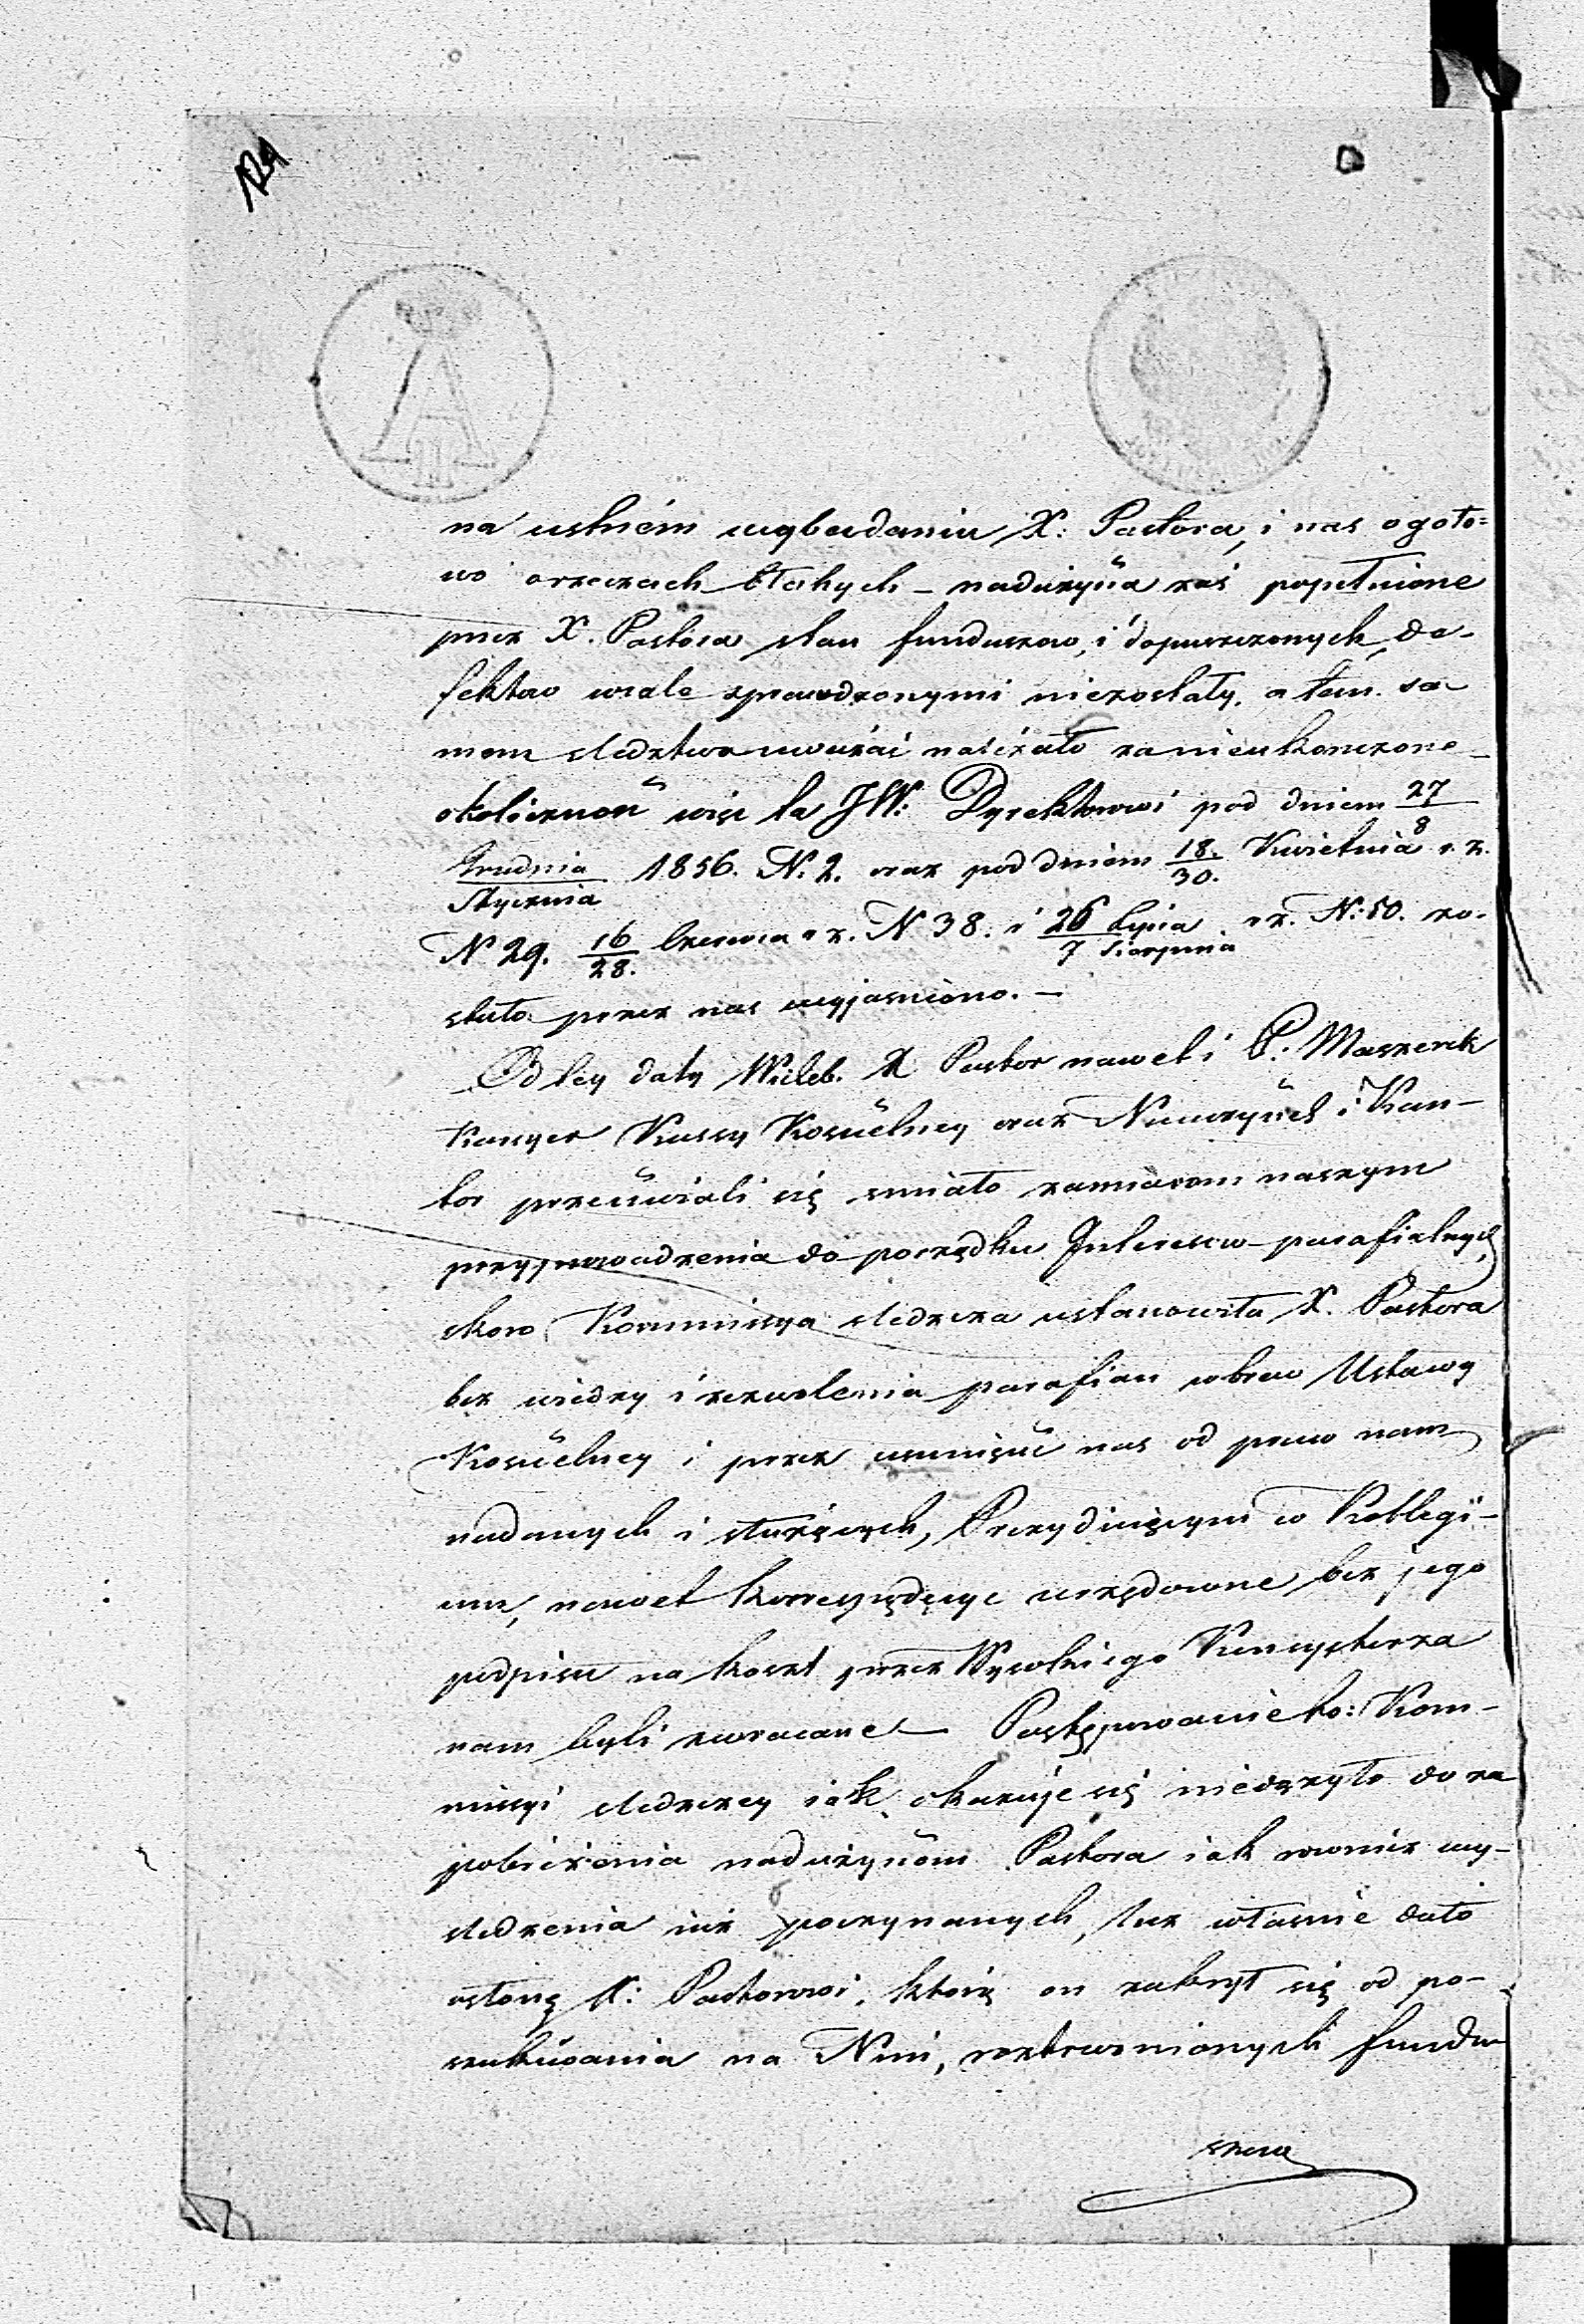 124
na ustném wybadaniu X: Pastora, i nas ogoło=
wo orzeczach błahych – nadużycia zaś popełnione
przez X. Pastora stan funduszow, i dopuszczonych de-
fektow wcale sprawdzonymi niezostały, a tem sa
mem sledztwo uważać należało zanieukonczone –
okoliczność więc ta JW: Dyrektorowi pod dniem 27/8
Grudnia/Stycznia 1856. N. 2. oraz pod dniem 18./30. Kwietnia r. z.
N 29. 16/28. Czerwca r. z. N 38. i 26 Lipca/7 Sierpnia r z. N: 50. zo-
stało przez nas wyjasniono. –
Od tey daty Wieleb. X Pastor nawet i P.: Maszenik
Kassyer Kassy Koscielney oraz Nauczyciel i Kan-
tor przeciwiali się smiało zamiarom naszym
przyprowadzenia do porządku Interesow parafialnych,
skoro Kommissya sledcza ustanowiła X. Pastora
bez wiedzy i zezwolenia parafian wbrew Ustawy
Koscielney i przez usunięcie nas od praw nam
nadanych i służących, Prezydującym w Kollegi-
um, nawet korrespondencye urzędowne bez jego
podpisu na koszt przez Wysokiego Konsystorza
nam byli zwracane – Postępowanie to: Kom-
missyi sledczey iak okazuje się niedążyło do za
pobieżenia nadużyciom Pastora iak rownież wy-
sledzenia iuż poczynanych, lecz własnie dało
osłonę X: Pastorowi, którą on zakrył się od po-
szukiwania na Nim, roztrwonionych fundu
szow